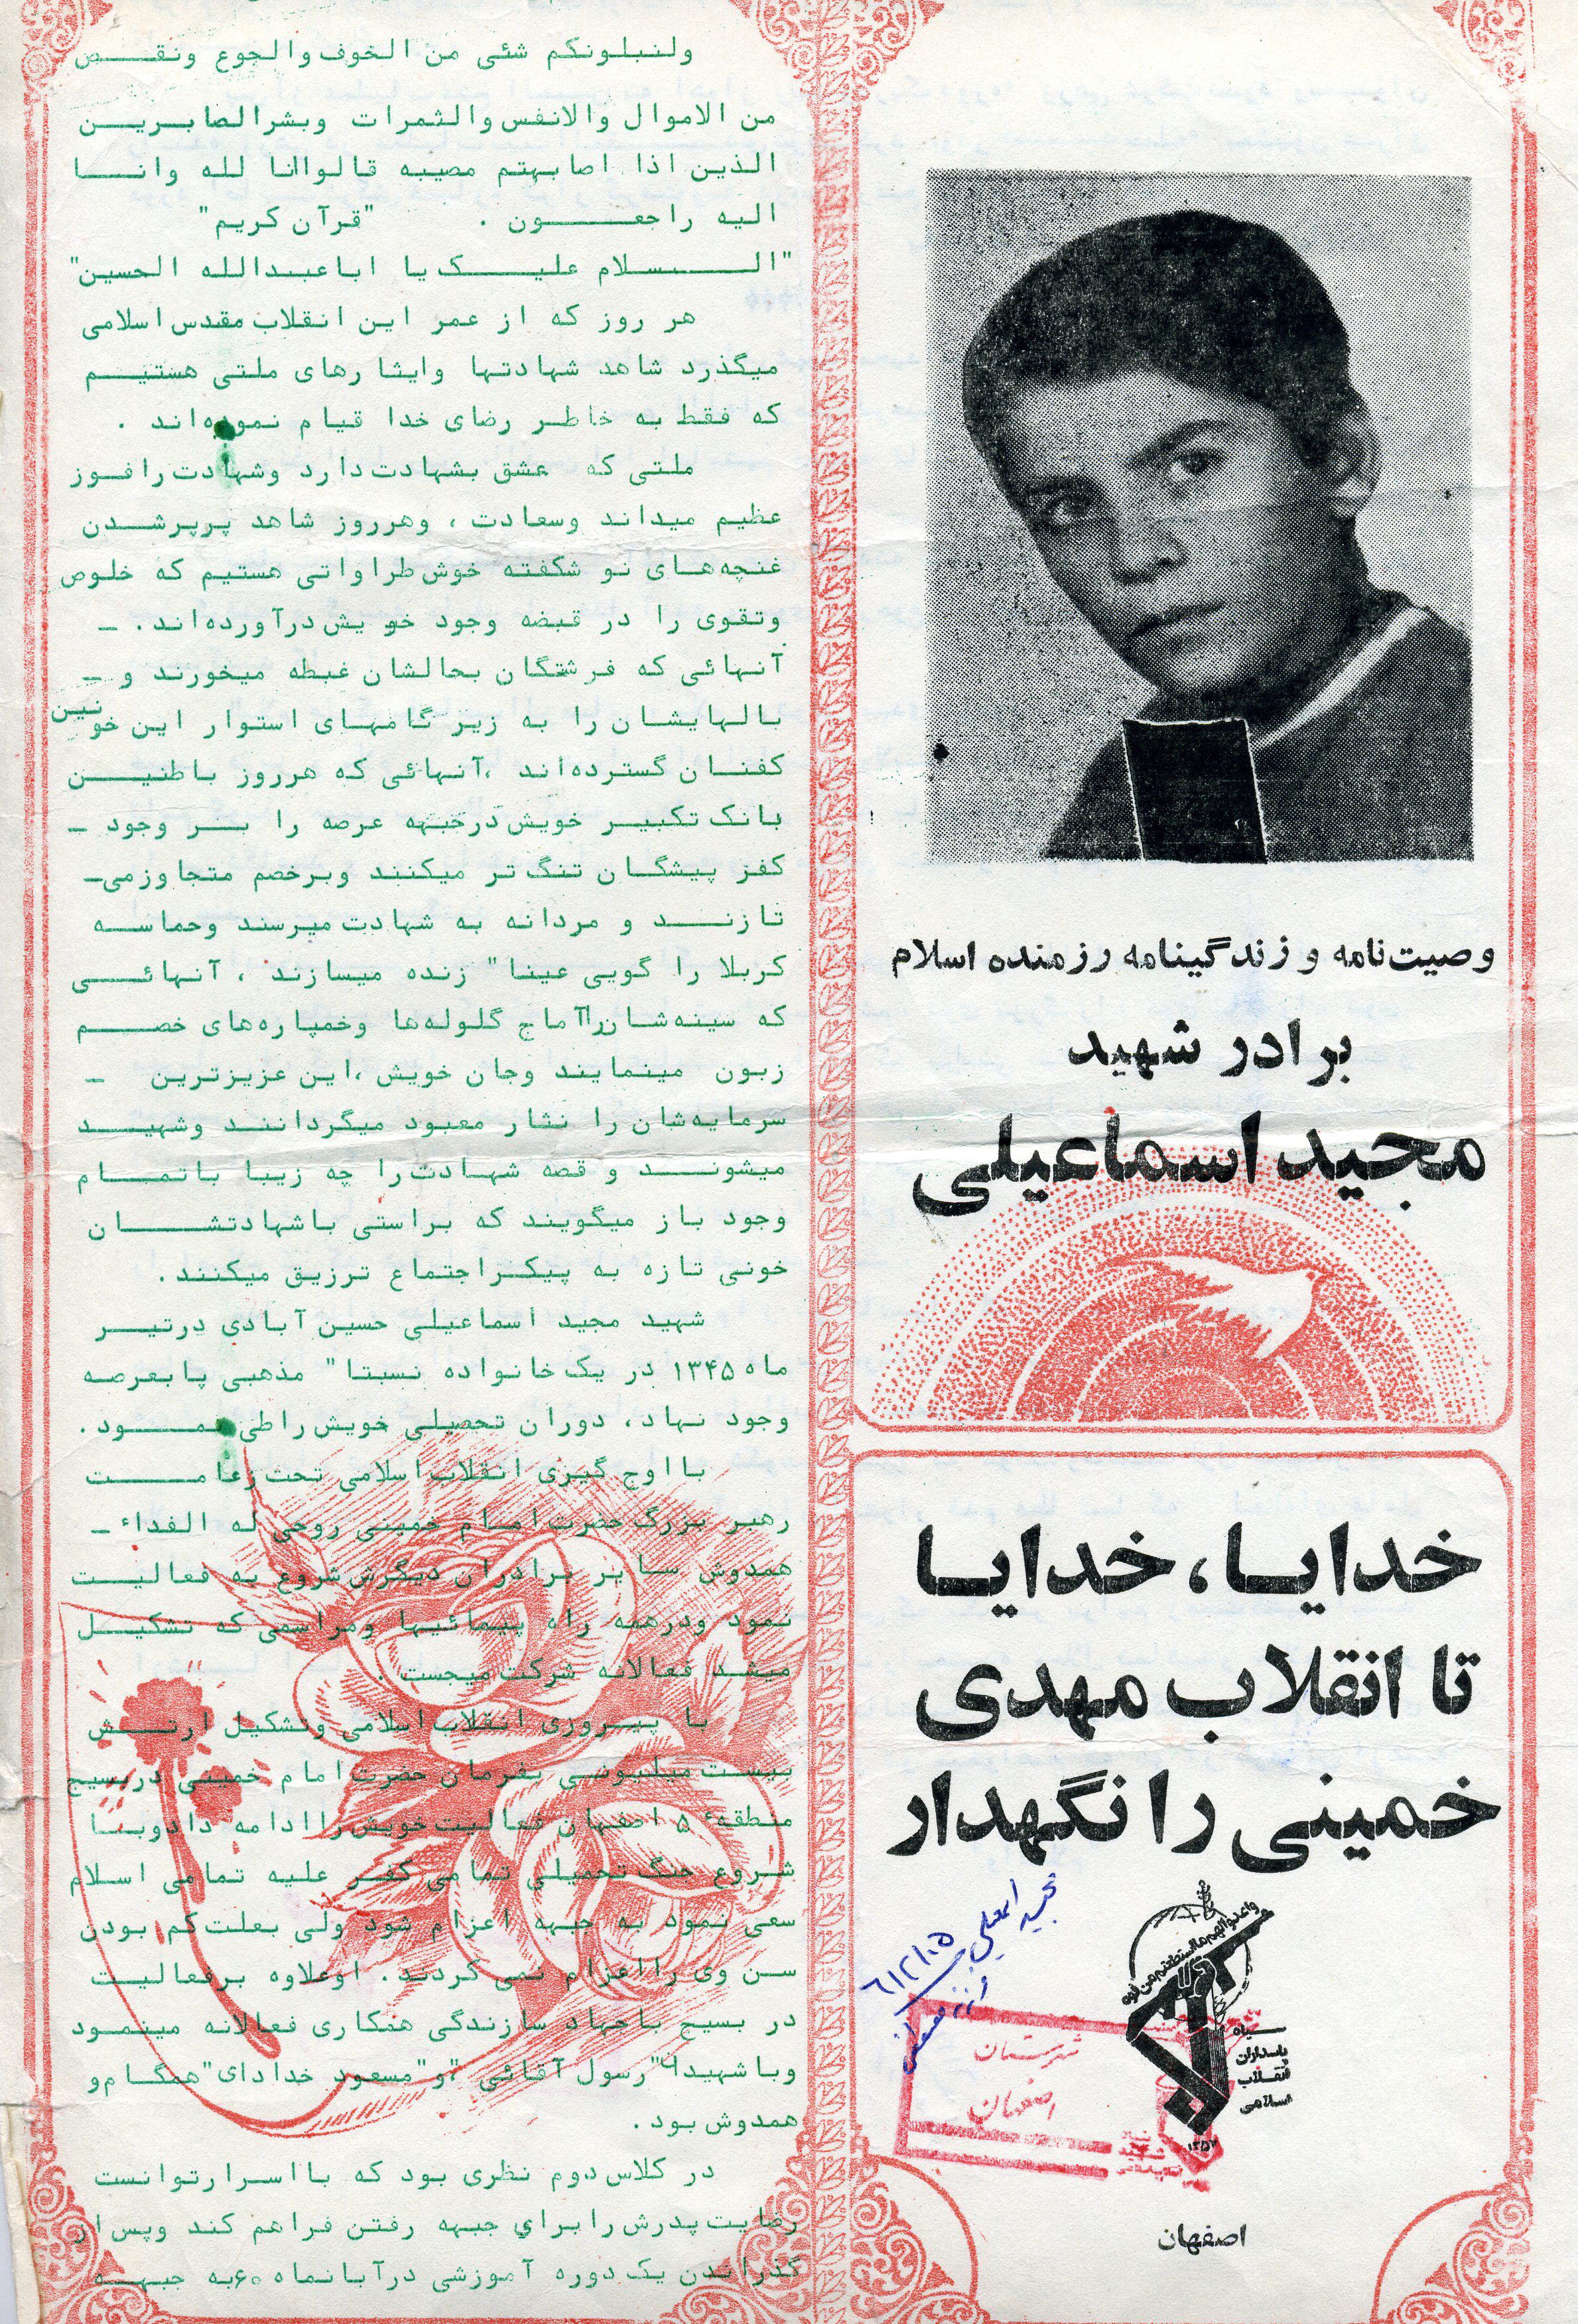 وصیت‌نامه و زندگینامه رزمنده اسلام
برادر شهید
مجید اسماعیلی
خدایا، خدایا
تا انقلاب مهدی
خمینی را نگهدار
مجید اسمعیلی
سپاه
پاسداران
انقلاب
اسلامی
۱۳۵۷
شهرستان
اصفهان
اصفهان
ولنبلونکم شئی من الخوف والجوع ونقص
من الاموال والانفس والثمرات وبشرالصابرین
الذین اذا اصابهتم مصیبه قالواانا لله وانا
الیه راجعون . "قرآن کریم"
"السلام علیک یا اباعبدالله الحسین"
هر روز که از عمر این انقلاب مقدس اسلامی
میگذرد شاهد شهادتها وایثارهای ملتی هستیم
که فقط به خاطر رضای خدا قیام نموده‌اند .
ملتی که عشق بشهادت دارد وشهادت را فوز
عظیم میداند وسعادت ، وهرروز شاهد پرپرشدن
غنچه‌های نو شکفته خوش طراواتی هستیم که خلوص
وتقوی را در قبضه وجود خویش درآورده‌اند. ـ
آنهائی که فرشتگان بحالشان غبطه میخورند و ـ
بالهایشان را به زیر گامهای استوار این خونین
کفنان گسترده‌اند ،آنهائی که هرروز باطنین
بانک تکبیر خویش درجبهه عرصه را بر وجود ـ
کفر پیشگان تنگ تر میکنند وبرخصم متجاوزمی‌ـ
تازند و مردانه به شهادت میرسند وحماسه
کربلا را گویی عینا" زنده میسازند ، آنهائی
که سینه‌شان‌راآماج گلوله‌ها وخمپاره‌های خصم
زبون مینمایند وجان خویش ،این عزیزترین ـ
سرمایه‌شان را نثار معبود میگردانند وشهید
میشوند و قصه شهادت را چه زیبا باتمام
وجود باز میگویند که براستی باشهادتشان
خونی تازه به پیکراجتماع ترزیق میکنند.
شهید مجید اسماعیلی حسین آبادی درتیر
ماه ۱۳۴۵ در یک خانواده نسبتا" مذهبی پابعرصه
وجود نهاد، دوران تحصیلی خویش راطی نمود.
بااوج گیری انقلاب اسلامی تحت زعامت
رهبر بزرگ حضرت امام خمینی روحی له الفداء ـ
همدوش سایر برادران دیگرش شروع به فعالیت
نمود ودرهمه راه پیمائیها ومراسمی که تشکیل
میشد فعالانه شرکت میجست .
با پیروزی انقلاب اسلامی وتشکیل ارتش
بیست میلیونی بفرمان حضرت امام خمینی دربسیج
منطقهٔ ۵ اصفهان فعالیت خویش را ادامه دادوبا
شروع جنگ تحمیلی تمامی کفر علیه تمامی اسلام
سعی نمود به جبهه اعزام شود ولی بعلت کم بودن
سن وی را اعزام نمی کردند. اوعلاوه برفعالیت
در بسیج باجهاد سازندگی همکاری فعالانه مینمود
وبا شهیدا "رسول آقائی "و"مسعود خدادای"همگام‌و
همدوش بود.
در کلاس دوم نظری بود که بااسرارتوانست
رضایت پدرش را برای جبهه رفتن فراهم کند وپس از
گذراندن یک دوره آموزشی درآبانماه ۶۰به جبهه